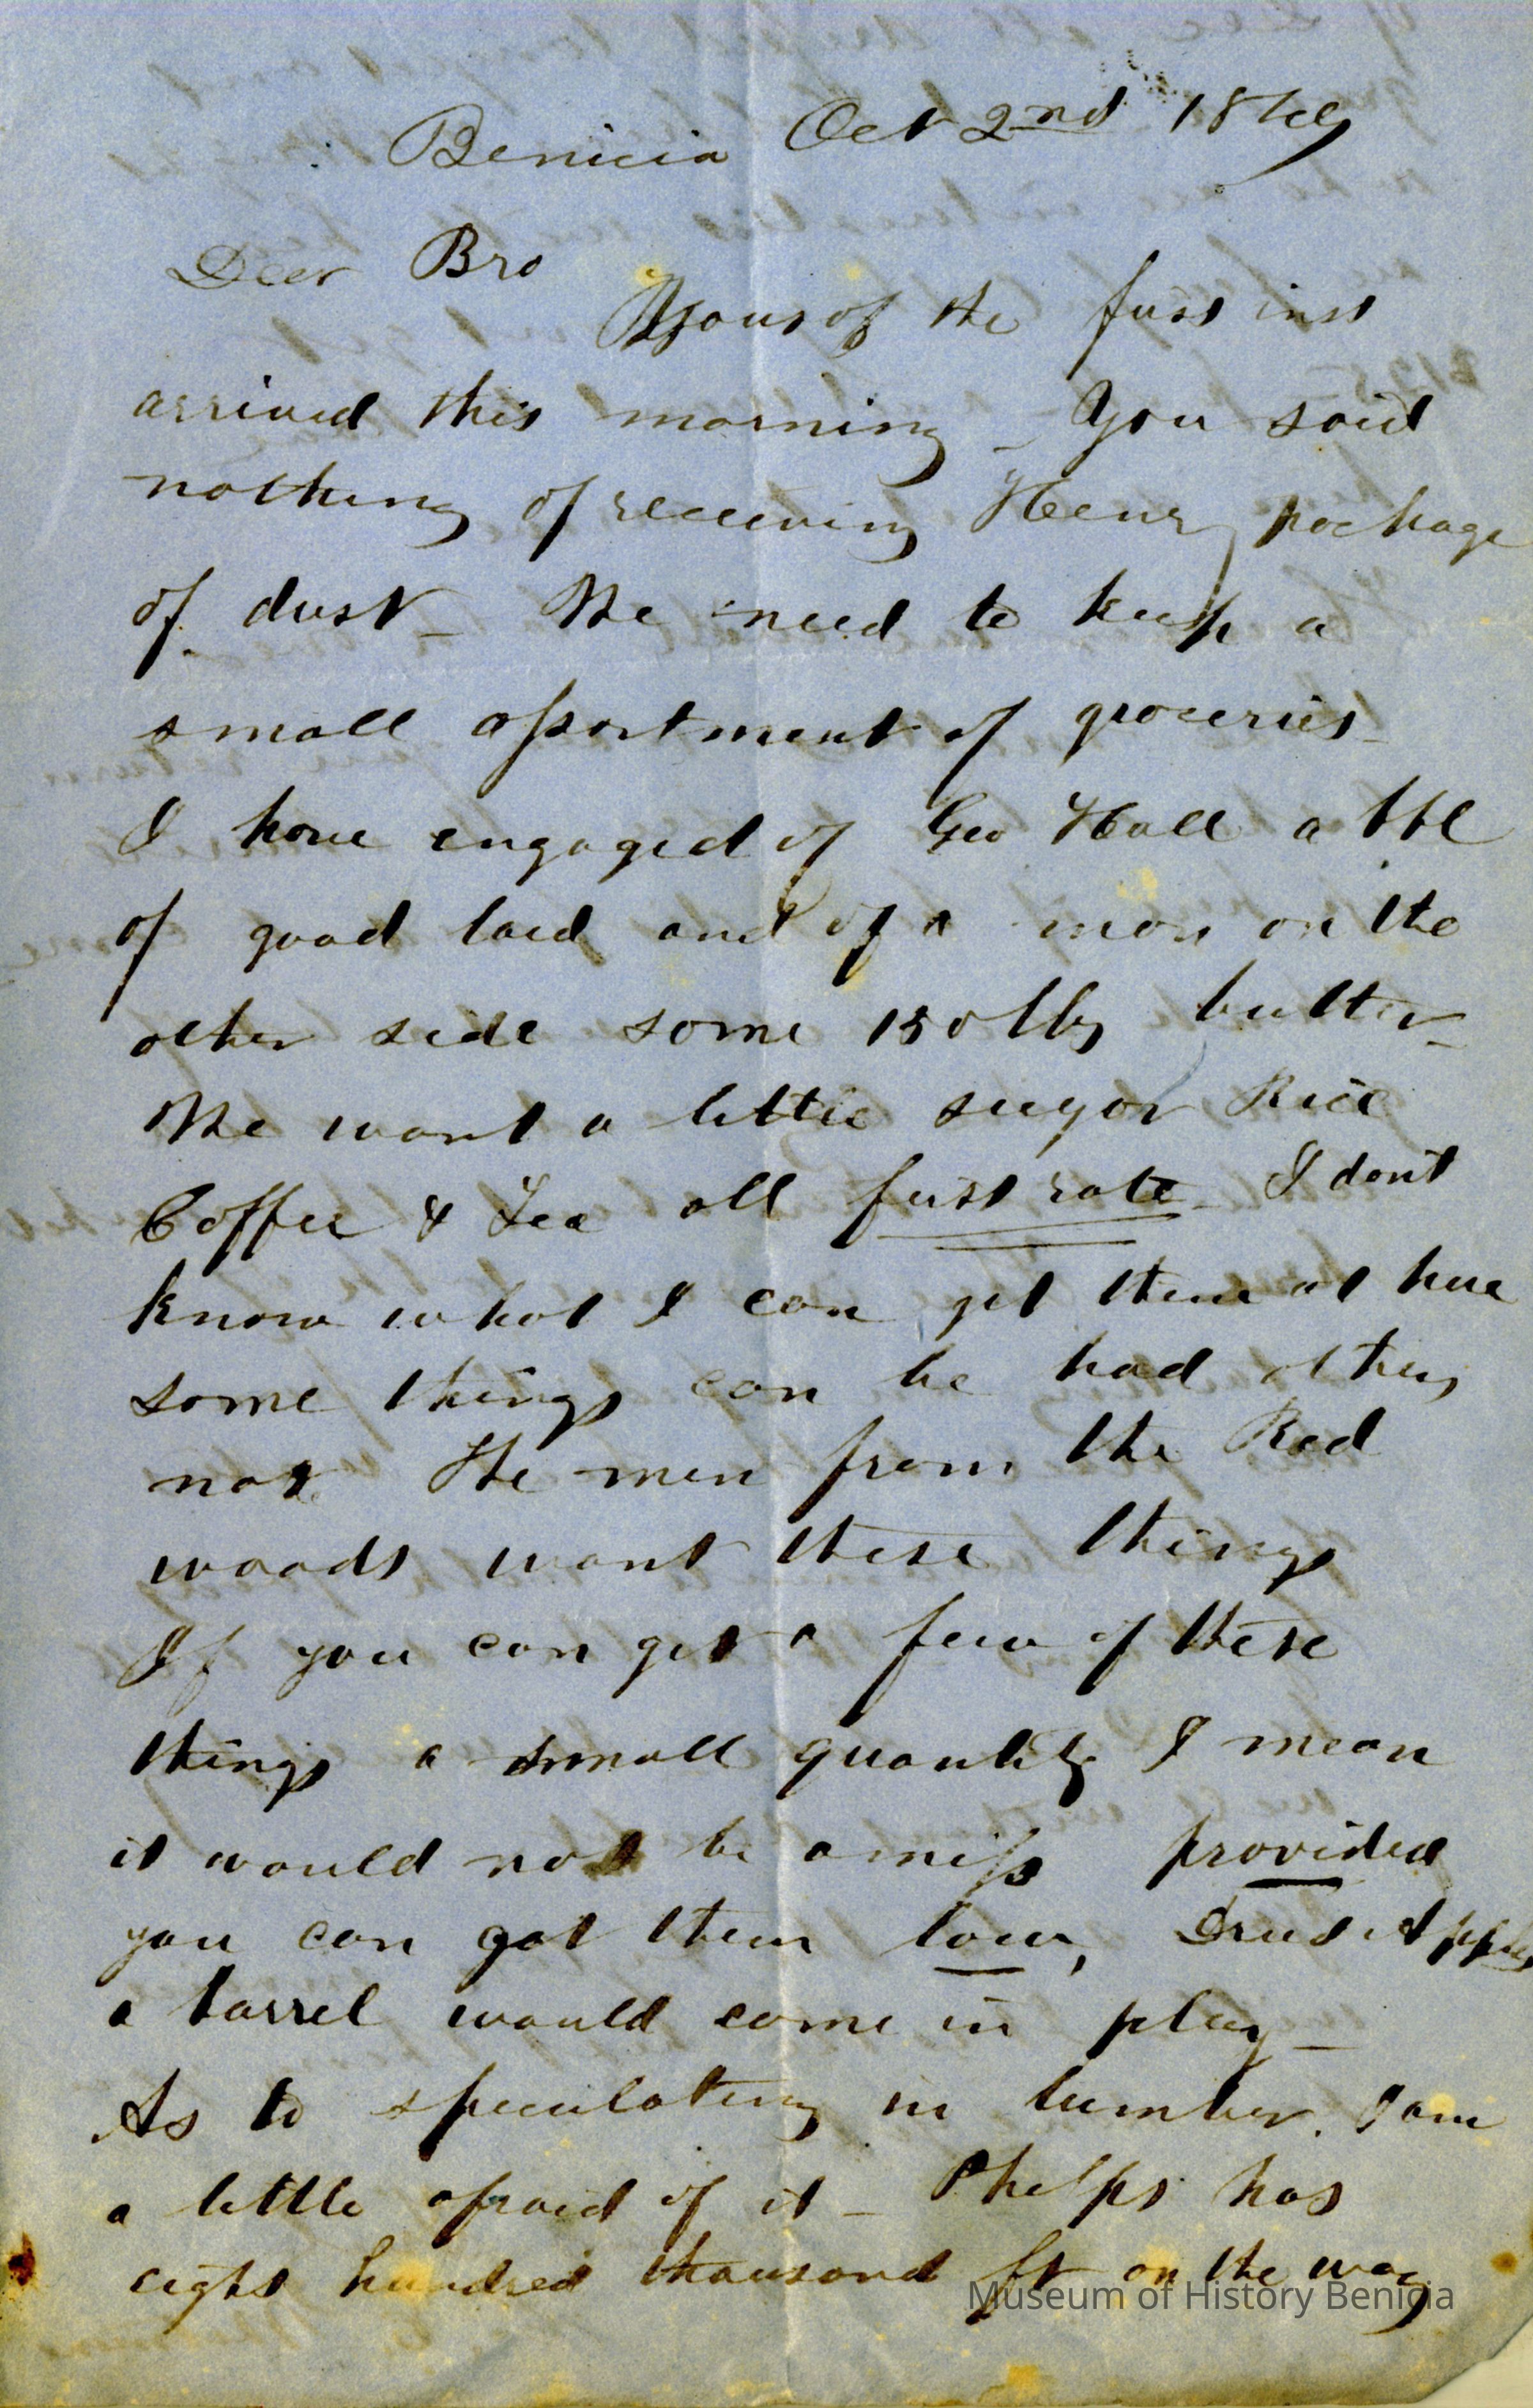 Benicia Oct 2nd 1849
Dear Bro
Yours of the first inst
arrived this morning - You said
nothing of receiving Henry package
of dust - We need to keep a
small assortment of groceries -
I have engaged of Geo Hall a bbl
of good lard and of a man on the
other side some 150 lbs butter -
We want a little sugar Rice
Coffee & Tea all first rate - I dont
know what I can get them at here
some things can be had others
not The men from the Red
woods want these things
If you can get a few of these
things a small quantity I mean
it would not be amiss provided
you can get them low, Dried Apples
a barrel would come in play -
As to speculating in lumber. I am
a little afraid of it - Phelps has
eight hundred thousand ft on the way
Museum of History Benicia